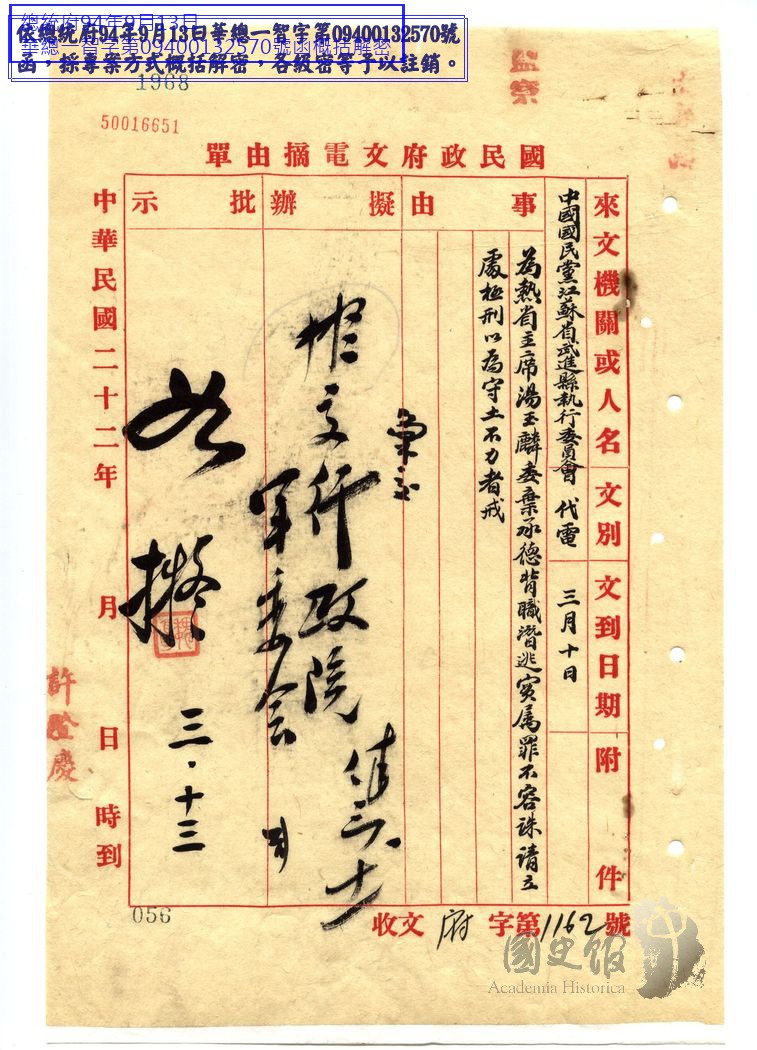 總統府94年9月13日
華總一智字第09400132570號函概括解密
依總統府94年9月13日華總一智字第09400132570號
函，採專案方式概括解密，各級密等予以註銷。
1968
50016651
國民政府文電摘由單
來文機關或人名
文別
文到日期
附件
中國國民黨江蘇省武進縣執行委員會
代電
三月十日
事由
擬辦
批示
為熱省主席湯玉麟委棄承德背職潛逃實屬罪不容誅請立
處極刑以為守土不力者戒
行政院
軍委會
如擬
三·十三
中華民國二十二年 月 日 時到
056
收文 府 字第1162號
國史館
Academia Historica